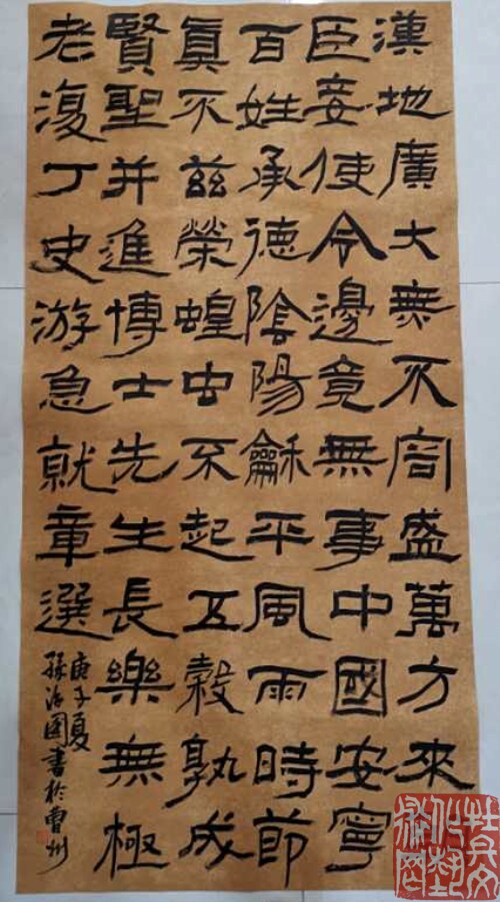 漢地廣大無不容盛萬方來
臣妾使令邊竟無事中國安寧
百姓承德陰陽龢平風雨時節
眞不茲榮蝗虫不起五穀孰成
賢聖并進博士先生長樂無極
老復丁史游急就章選
庚子夏
孫國書於曹州